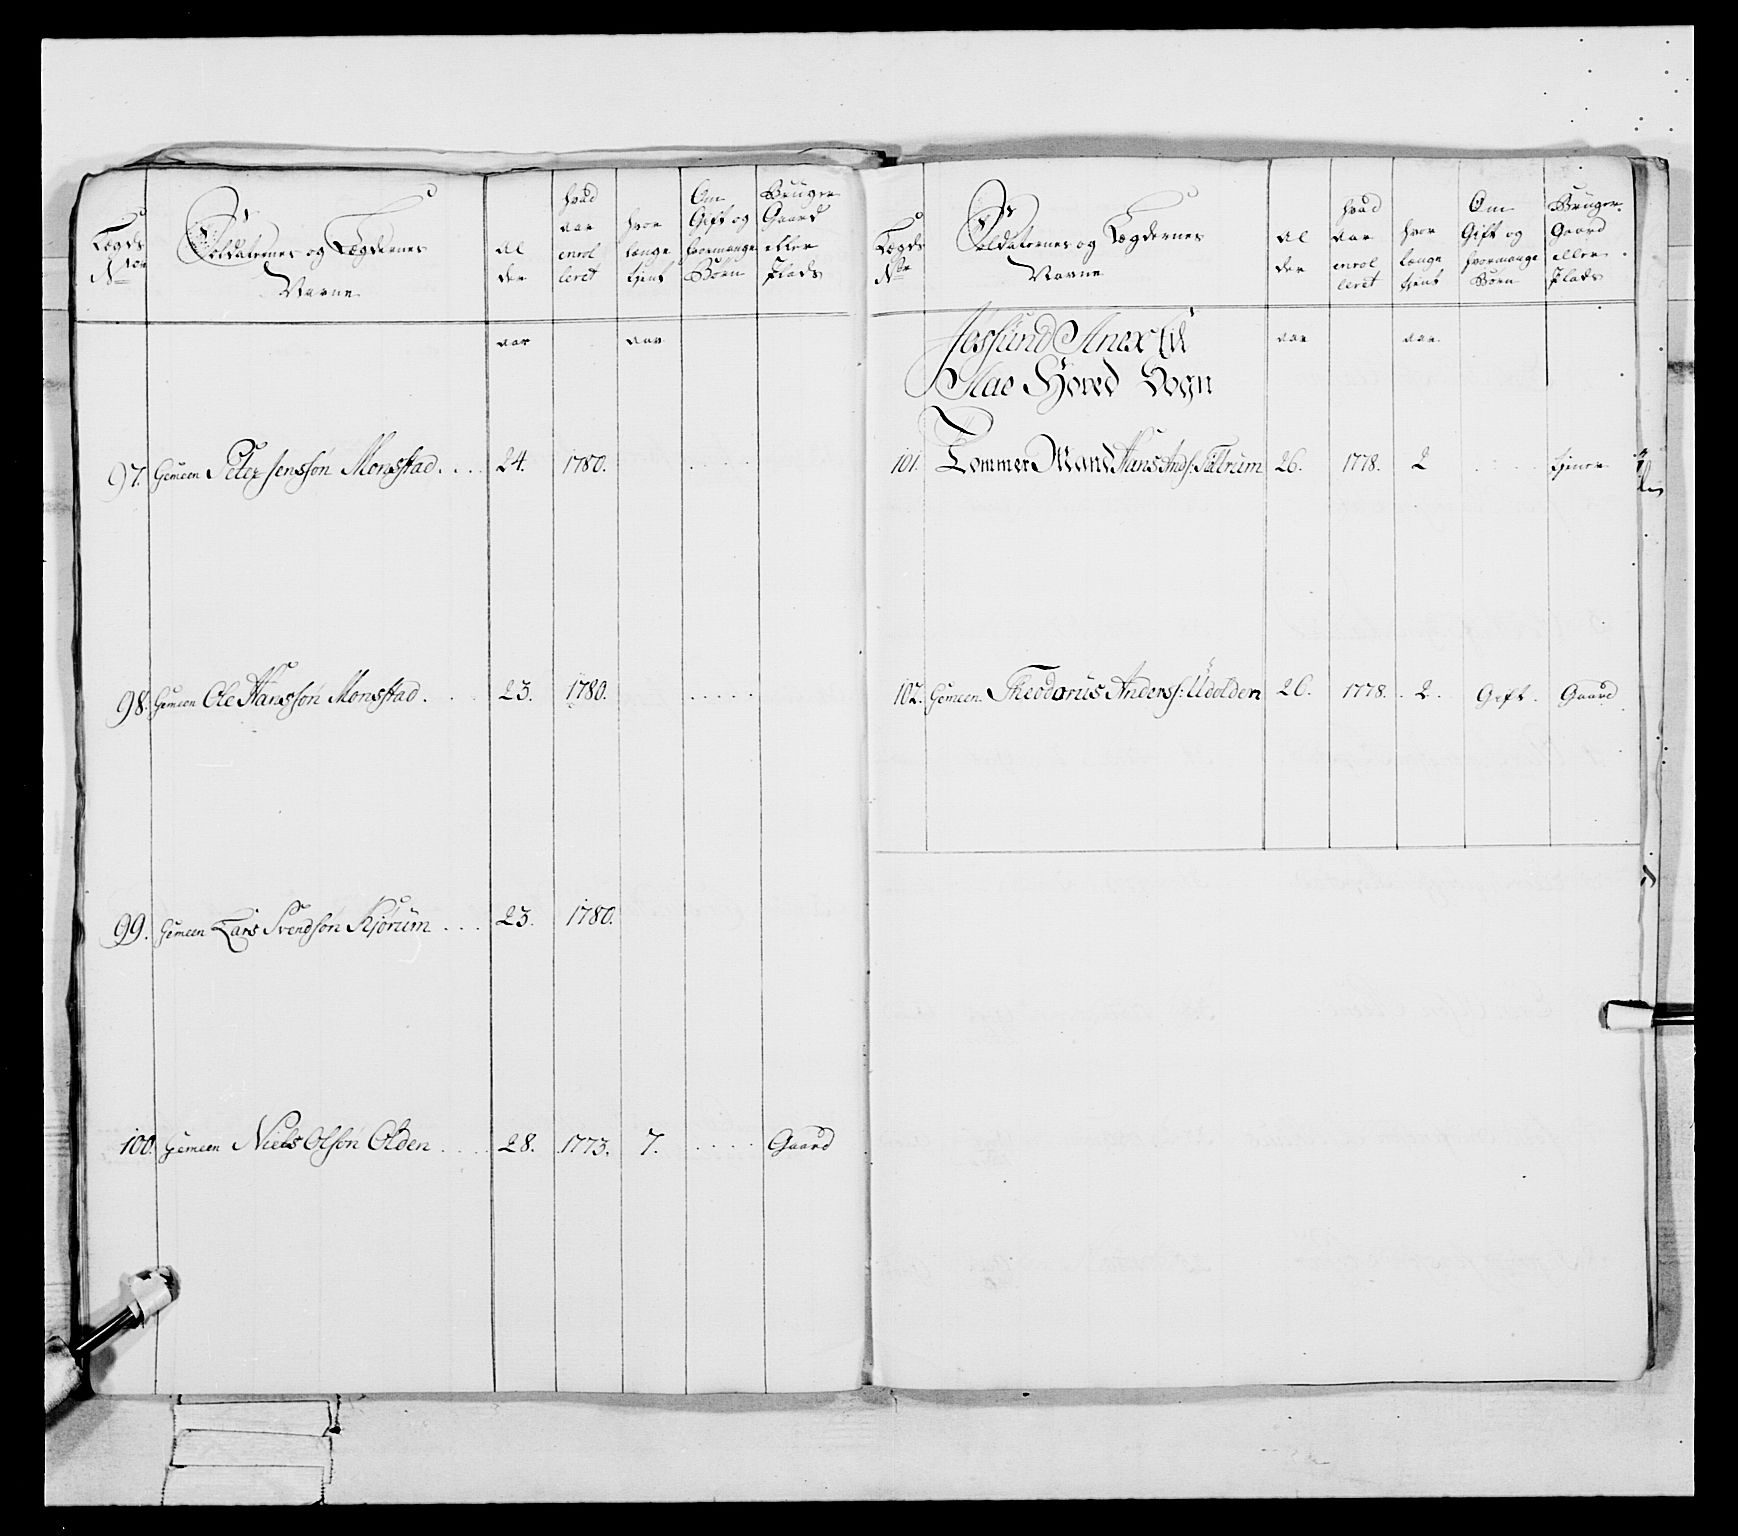 Lægds Nroe
Soldaternes og Lægdernes Navne
Al der
hvad aar enrol leret
hvor længe tjent
Om Gift og hvormange Børn
Bruger Gaard eller Plads
aar aar
97. Gemeen Peter Jensson Monstad 24. 1780.
98. Gemeen Ole Hansson Monstad 23. 1780.
99. Gemeen Lars Svendson Kjorum 23. 1780.
100. Gemeen Niels Olson Olden 28. 1773. 7. Gaard
Lægds Nr
Soldaternes og Lægdernes Navne
Al der
hvad aar enrol leret
hvor længe tjent
Om Gift og hvormange Børn
Bruger Gaard eller Plads
Jossund Anex til
aar aar
Hoved Sogn
101. Tommer Mand Hans Ands: 26. 1778. 2 tjener
102. Gemeen Theodorus Anders: Udolden 26. 1778. 2. Gift. Gaard